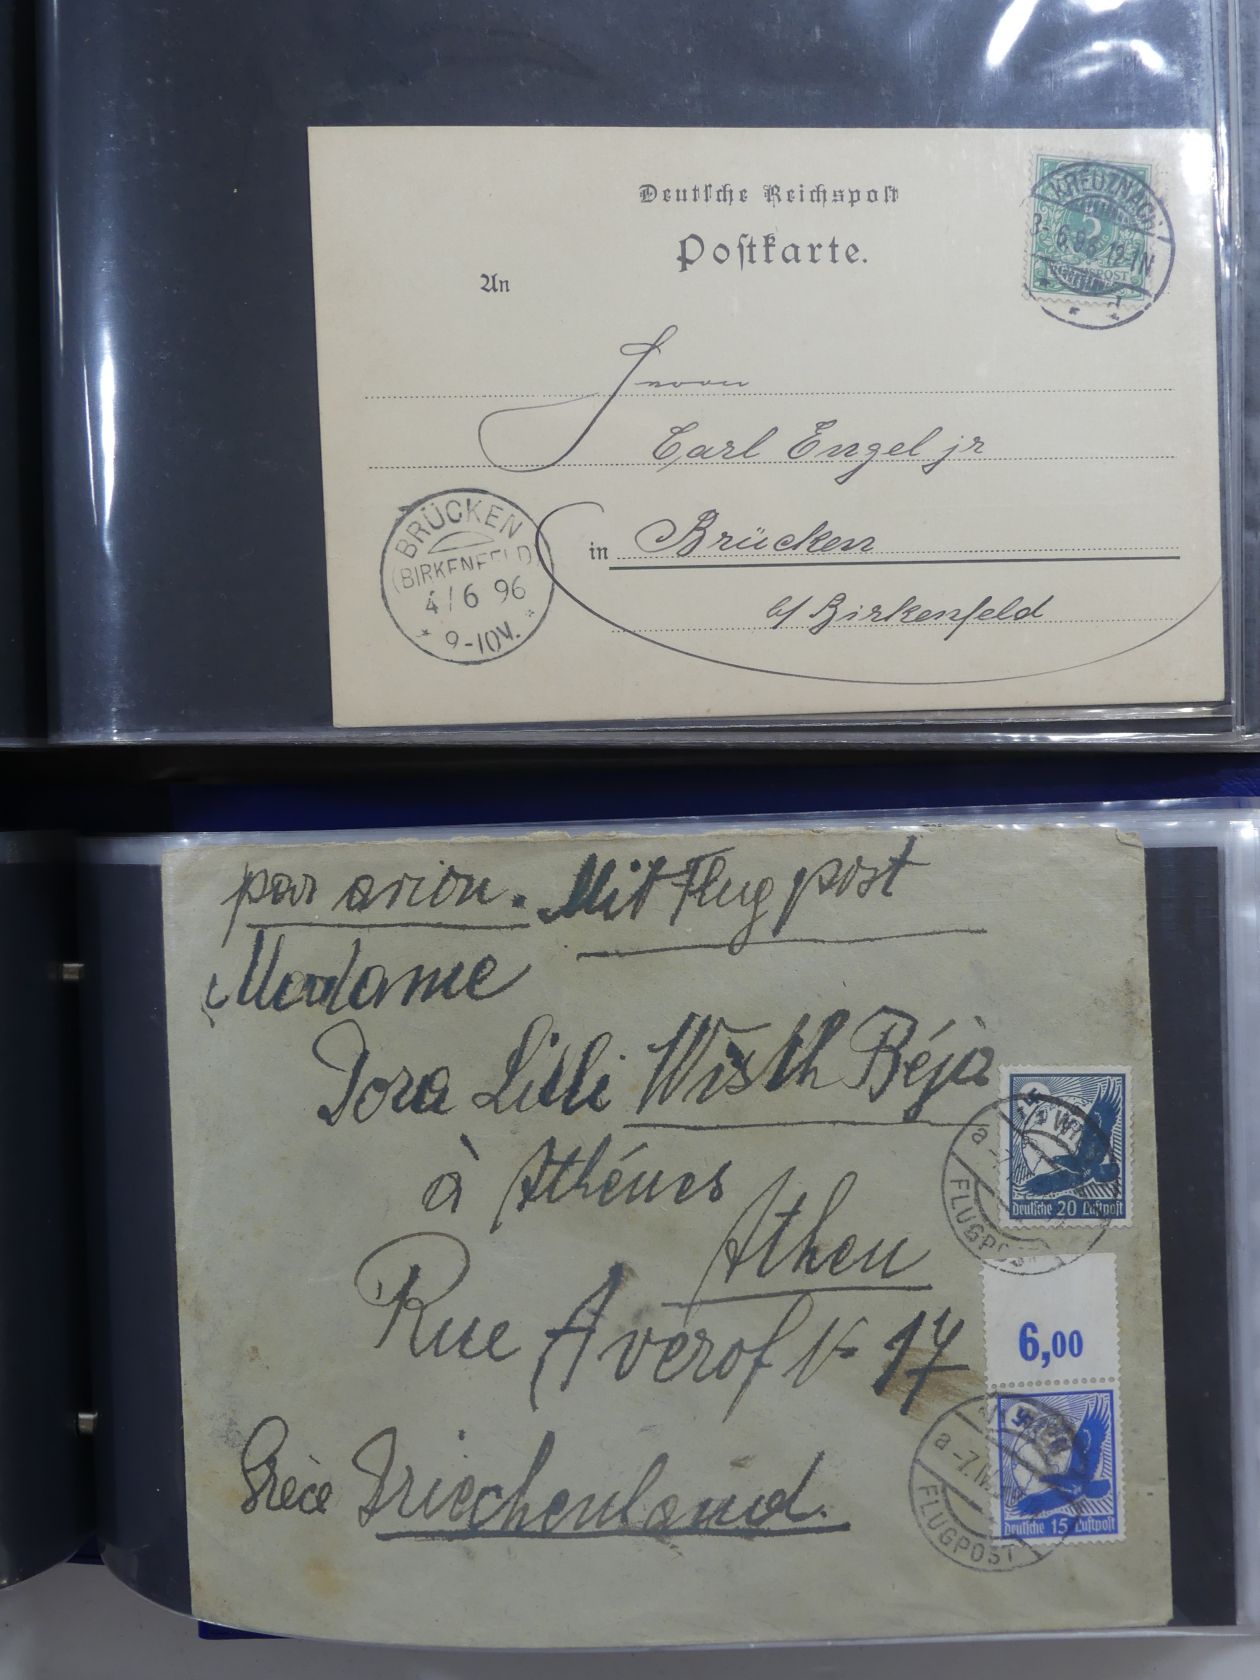 Deutsche Reichspost
Postkarte.
An
KREUZNACH
3-6.96.12-1N.
* * 1
5
REICHSPOST
Herrn
Carl Engel jr
in Brücken
b/ Birkenfeld
BRÜCKEN
(BIRKENFELD)
4/6 96
* 9-10V. *
par avion. Mit Flugpost
Madame
Dora Lilli Wisth Béja
à Athénes
Athen
Rue Averof N- 17
Grèce Griechenland.
a
FLUGPOST
Deutsche 20 Luftpost
6,00
a -7.IV.
FLUGPOST
Deutsche 15 Luftpost